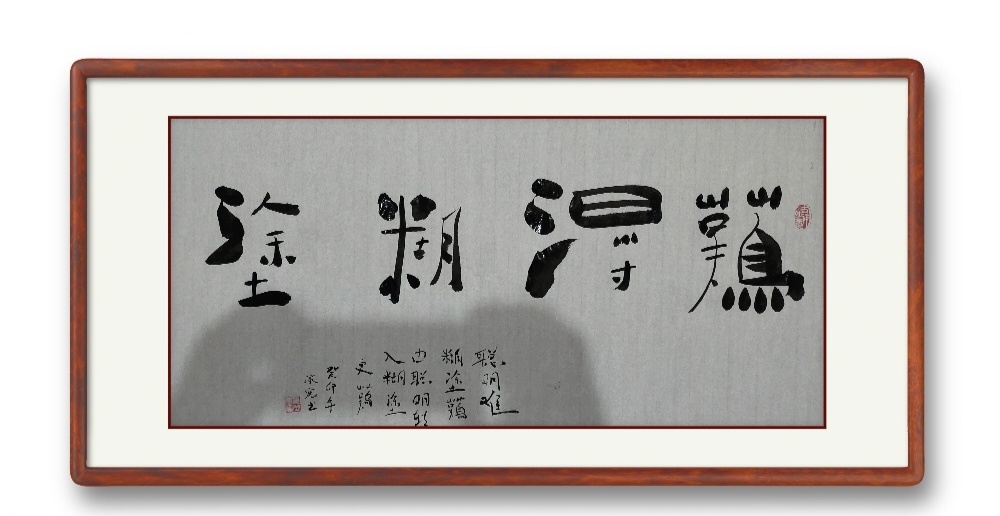 難得糊塗
聪明难
糊塗難
由聪明转
入糊塗
更難
癸卯年